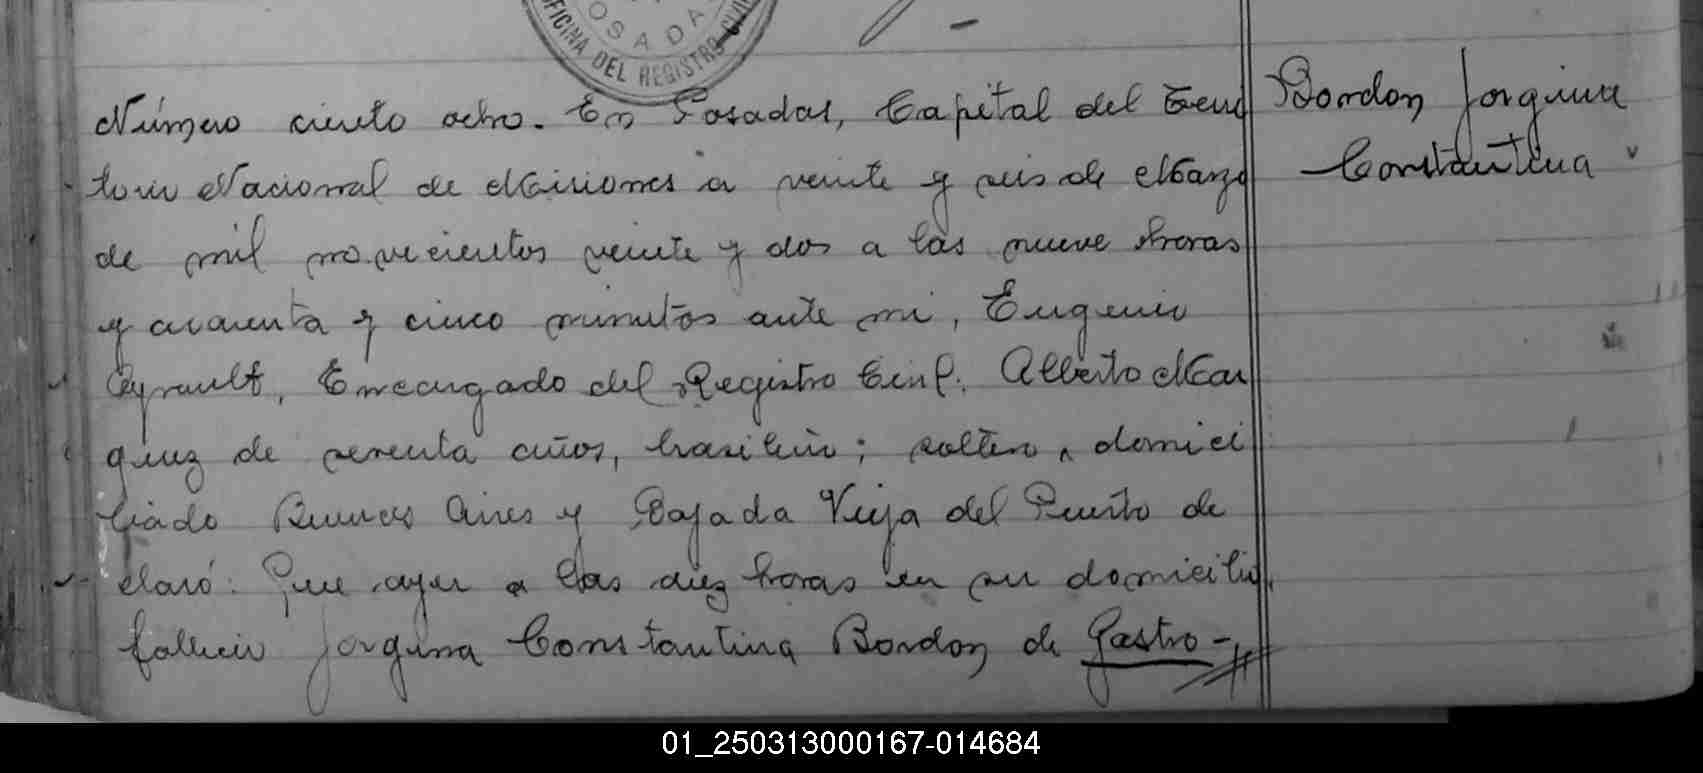 OSADAS
OFICINA DEL REGISTRO CIVIL
Número ciento ocho. En Posadas, Capital del Terri
torio Nacional de Misiones a veinte y seis de Marzo
de mil novecientos veinte y dos a las nueve horas
y cuarenta y cinco minutos ante mi, Eugenio
Ayrault, Encargado del Registro Civil. Alberto Mar
quez de sesenta años, brasilero; soltero, domici
liado Buenos Aires y Bajada Vieja del Puerto de
claró: Que ayer a las diez horas en su domicilio
falleció Jorgina Constantina Bordon de Gastro-
Bordon Jorgina
Constantina
01_250313000167-014684